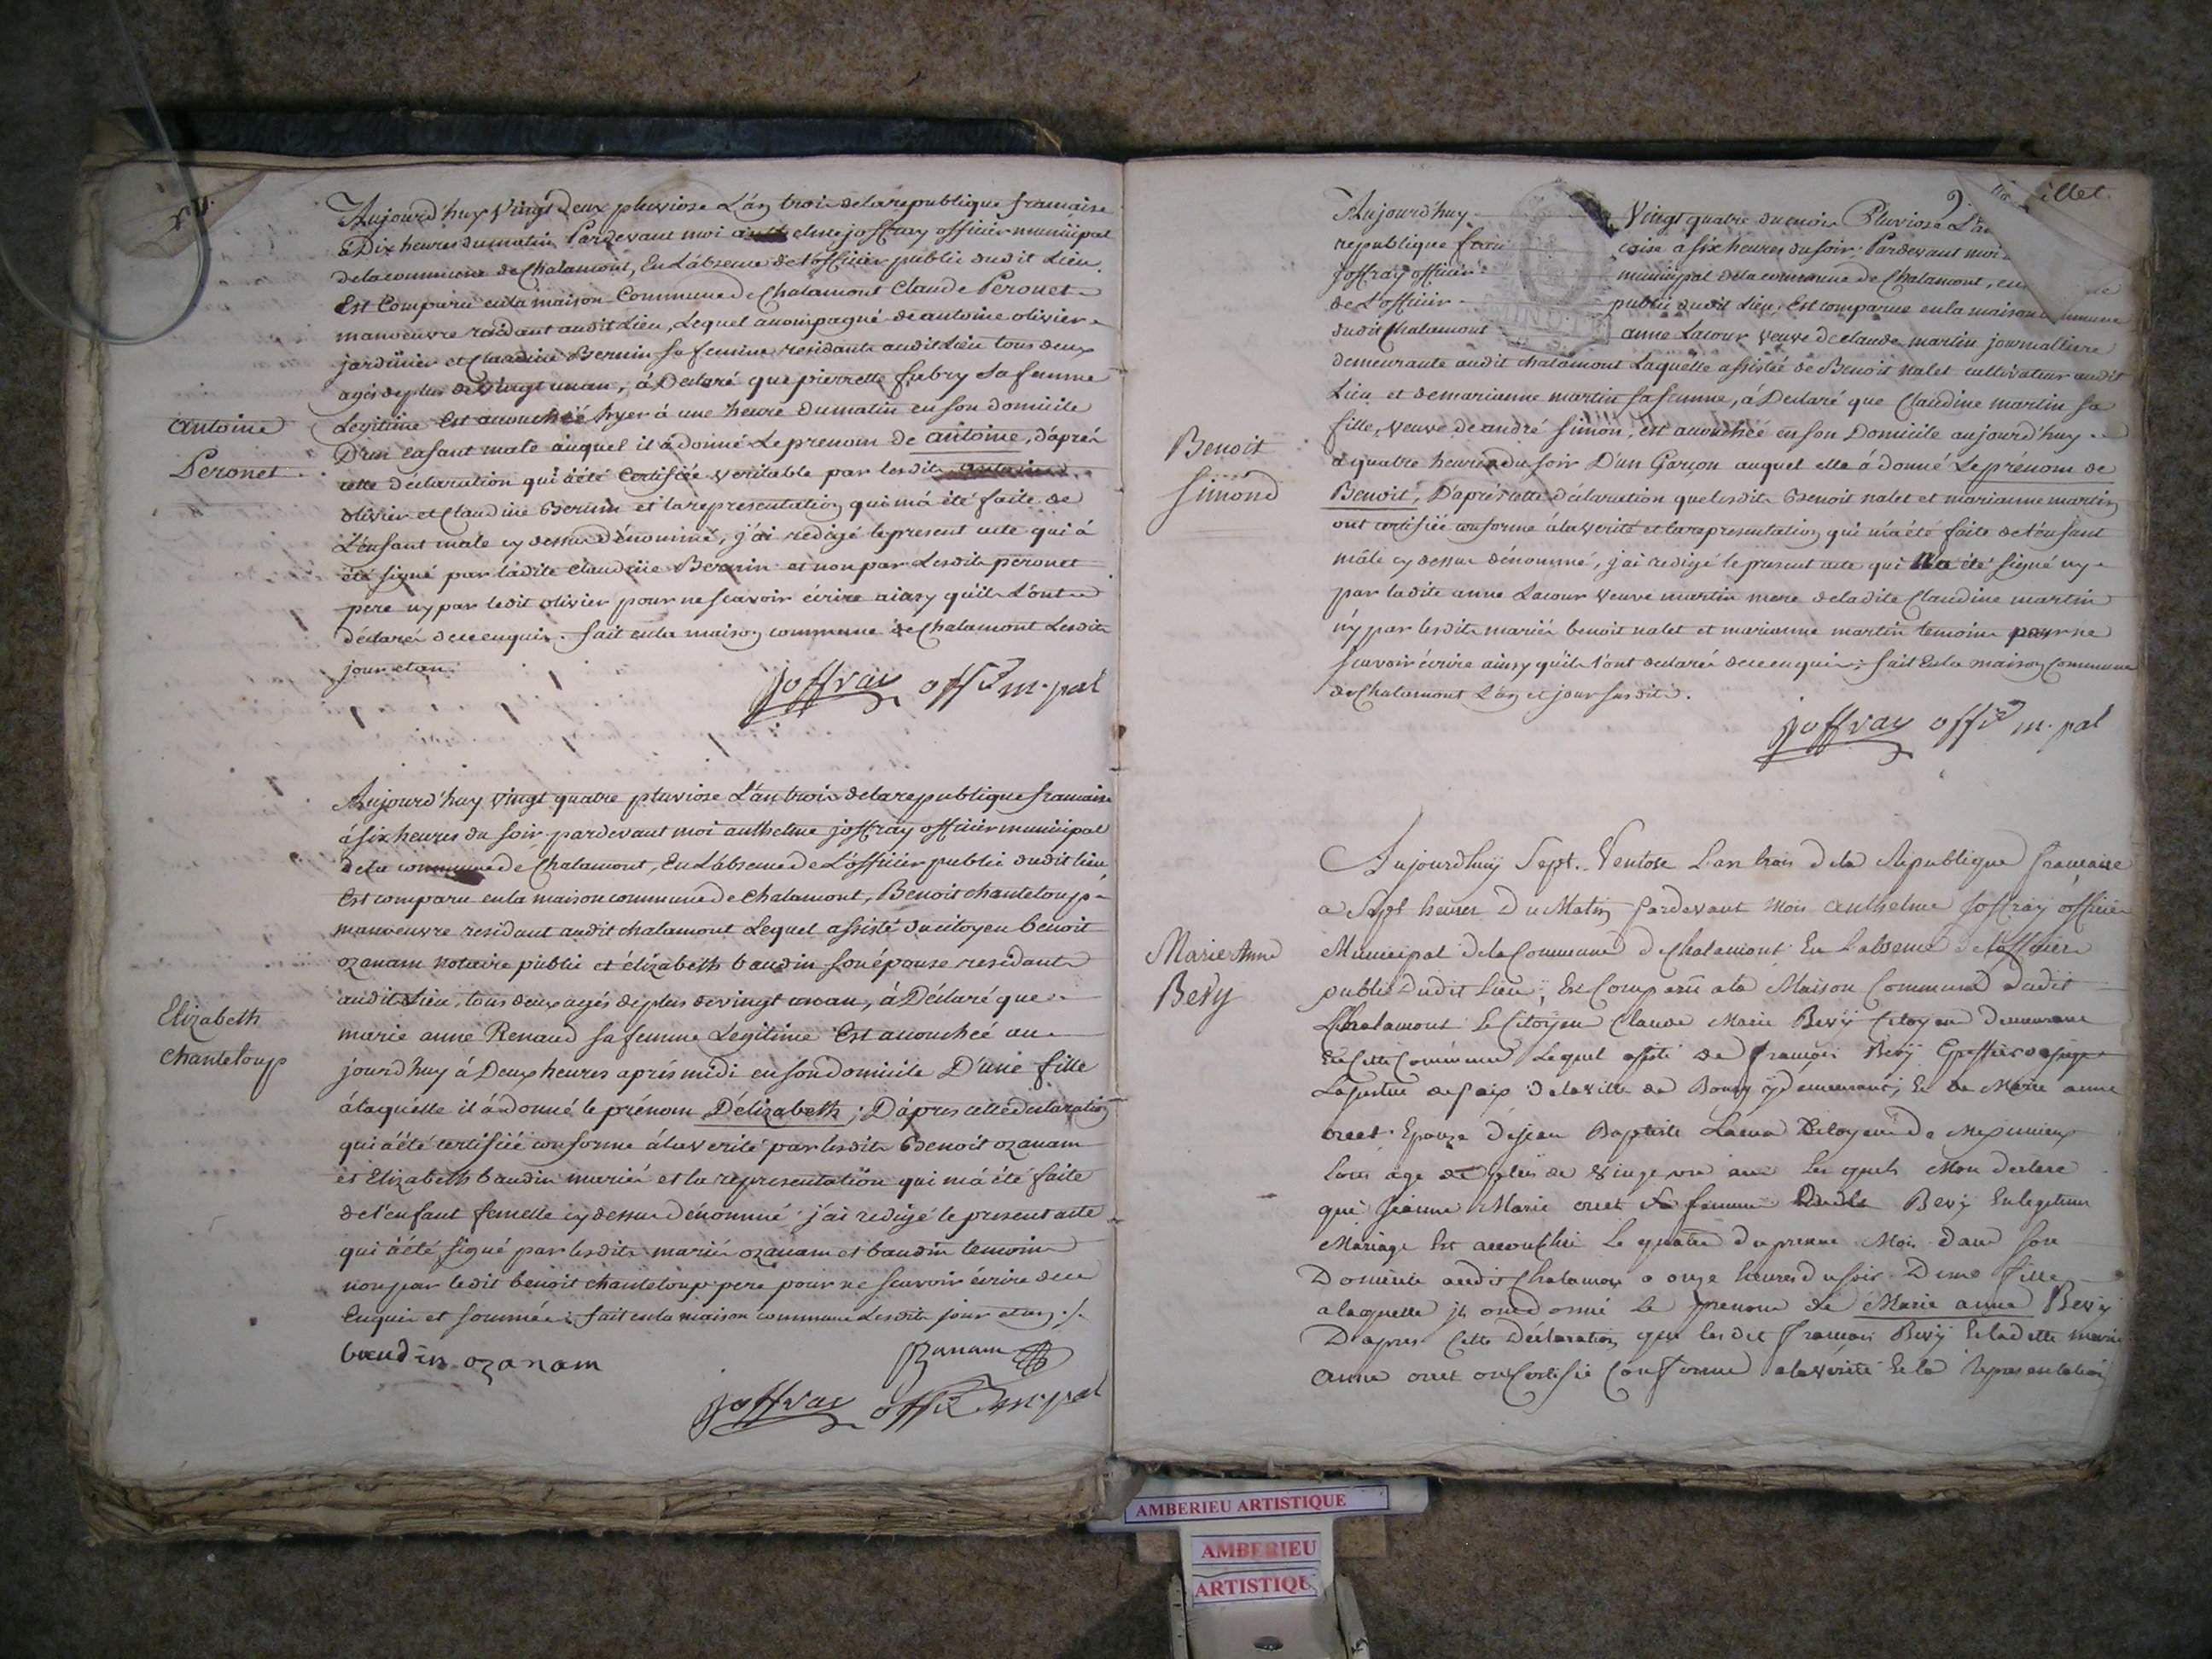 Aujourd'huy vingt deux pluviose L'an trois de la republique francaise
à Dix heures du matin Pardevant moi anthelme joffray officier municipal
de la commune de Chalamont, En L'absence de L'officier public dudit Lieu.
Est Comparu en la maison Commune de Chalamont Claude Peronet
manoeuvre residant audit Lieu, Lequel accompagné de antoine olivier
jardinier et Claudine Bernin sa femme residants audit Lieu tous deux
agés de plus de vingt un an, à Déclaré que pierrette fubry Sa femme
Legitime Est accouchéé hyer à une heure du matin en son domicile
D'un enfant male auquel il à donné Le prenom de antoine, d'après
cette déclaration qui à été Certifiée veritable par lesdits
olivier et Claudine Bernin et la representation qui m'à été faite de
L'enfant male cy dessus Dénommé, j'ai redigé le present acte qui à
été signé par ladite Claudine Bernin et non par Lesdits peronet
pere ny par ledit olivier pour ne scavoir écrire ainsy qu'ils L'ont
déclarés de ce enquis. fait en la maison commune de Chalamont Lesdits
jour et an.
joffray offier m.pal
antoine
Peronet
Aujourd'huy vingt quatre pluviose L'an trois de la republique francaise
à six heures du soir pardevant moi anthelme joffray officier municipal
de la commune de Chalamont, En L'absence de L'officier public dudit lieu
Est comparu en la maison commune de Chalamont, Benoit chanteloup
manoeuvre residant audit chalamont Lequel assisté du citoyen benoit
ozanam notaire public et élizabeth baudin son épouse residants
audit Lieu, tous deux agés de plus de vingt un an, à Déclaré que
marie anne Renaud sa femme Legitime Est accouchéé au
jourd'huy à Deux heures après midi en son domicile D'une fille
à laquelle il à donné le prénom D'élizabeth; D'après cette declaration
qui à été certifiée conforme à la verité par lesdits Benoit ozanam
et Elizabeth baudin mariés et la representation qui m'à été faite
de l'enfant femelle cy dessus Dénommé j'ai redigé le present acte
qui à été signé par lesdits mariés ozanam et baudin temoins
non par ledit benoit chanteloup pere pour ne scavoir écrire de ce
Enquis et sommés: fait en la maison commune Lesdits jour et an ./.
baudin ozanam
Ozanam
joffray offier m.pal
Elizabeth
chanteloup
illet
Aujourd'huy vingt quatre du mois Pluviose L'an
republique fran coise à six heures du soir; Pardevant moi
joffray officier municipal de la commune de Chalamont, en
de L'officier public dudit Lieu, Est comparue en la maison commune
dudit Chalamont anne Lacour veuve de claude martin journalliere
demeurante audit chalamont Laquelle assistéé de Benoit nalet cultivateur audit
Lieu et de marianne martin sa femme, à Déclaré que Claudine martin sa
fille, veuve de andré simon, est accouchéé en son Domicile aujourd'huy
à quatre heures du soir D'un Garçon auquel elle à donné Le prénom de
Benoit, D'après cette déclaration que lesdits Benoit nalet et marianne martin
ont certifiée conforme à la verité et la representation qui m'à été faite de l'enfant
mâle cy dessus dénommé, j'ai redigé le present acte qui n'a été signé ny
par ladite anne Lacour veuve martin mere de ladite Claudine martin
n'y par lesdits mariés benoit nalet et marianne martin temoins pour ne
scavoir écrire ainsy qu'ils l'ont declarés de ce enquis; fait En la maison Commune
de Chalamont L'an et jour susdits.
joffray offier m.pal
Benoit
simond
Aujourdhuy Sept Ventose L'an trois de la République francaise
a Sept heures Du Matin Pardevant Mois anthelme Joffray officier
Municipal de la Commune de Chalamont En L'absence de l'officier
public Dudit Lieu; Est Comparu a la Maison Commune Dudit
Chalamont Le Citoyen Claude Marie Bevy Citoyen Demeurant
En Cette Commune Lequel assisté de François Bevy Greffier
La justice de paix De la ville de Bourg y demeurant, Et de Marie anne
oret Epouze De Jean Baptiste Citoyen De Meximieux
tous agé de plus de vingt un ans Les quels Mon declaré
que Jeanne Marie oret Sa femme Dudit Bevy En legitime
Mariage Est accouchée Le quatre du present Mois dans son
Domicile audit Chalamon a onze heures du soir D'une fille
a laquelle ils ont donné Le prenom de Marie anne Bevy
D'apres Cette Déclaration que les dit francois Bevy Et ladette marie
anne oret on Certifié Conforme a la verité Et la representation
Marie Anne
Bevy
AMBERIEU ARTISTIQUE
AMBERIEU
ARTISTIQU